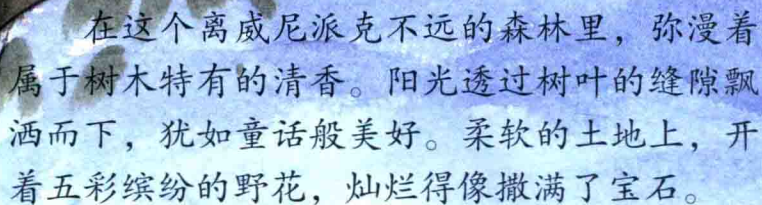 在这个离威尼派克不远的森林里，弥漫着
属于树木特有的清香。阳光透过树叶的缝隙飘
洒而下，犹如童话般美好。柔软的土地上，开
着五彩缤纷的野花，灿烂得像撒满了宝石。